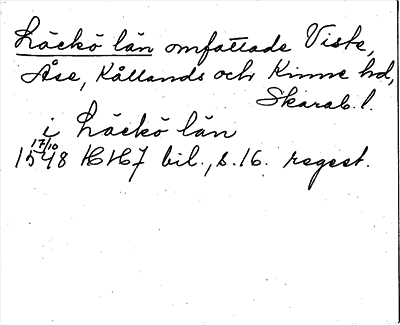 Läckö län omfattade Viste,
Åse, Kållands och Kinne hd,
Skarab. l.
i Läckö län
17/10
1548 HH7 bil., s. 16. regest.